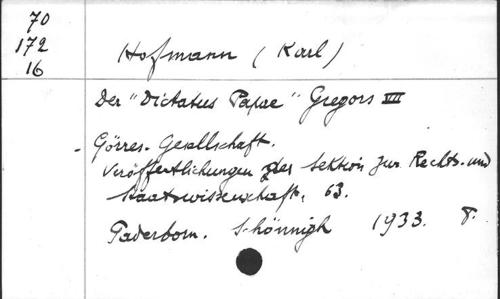 70
172
16
Hofmann (Karl)
Der "Dictatus Papae" Gregors VII
- Görres-Gesellschaft.
Veröffentlichungen der Sektion zur Rechts- und
Staatswissenschaft, 63.
Paderborn. Schönnigh 1933. 8.